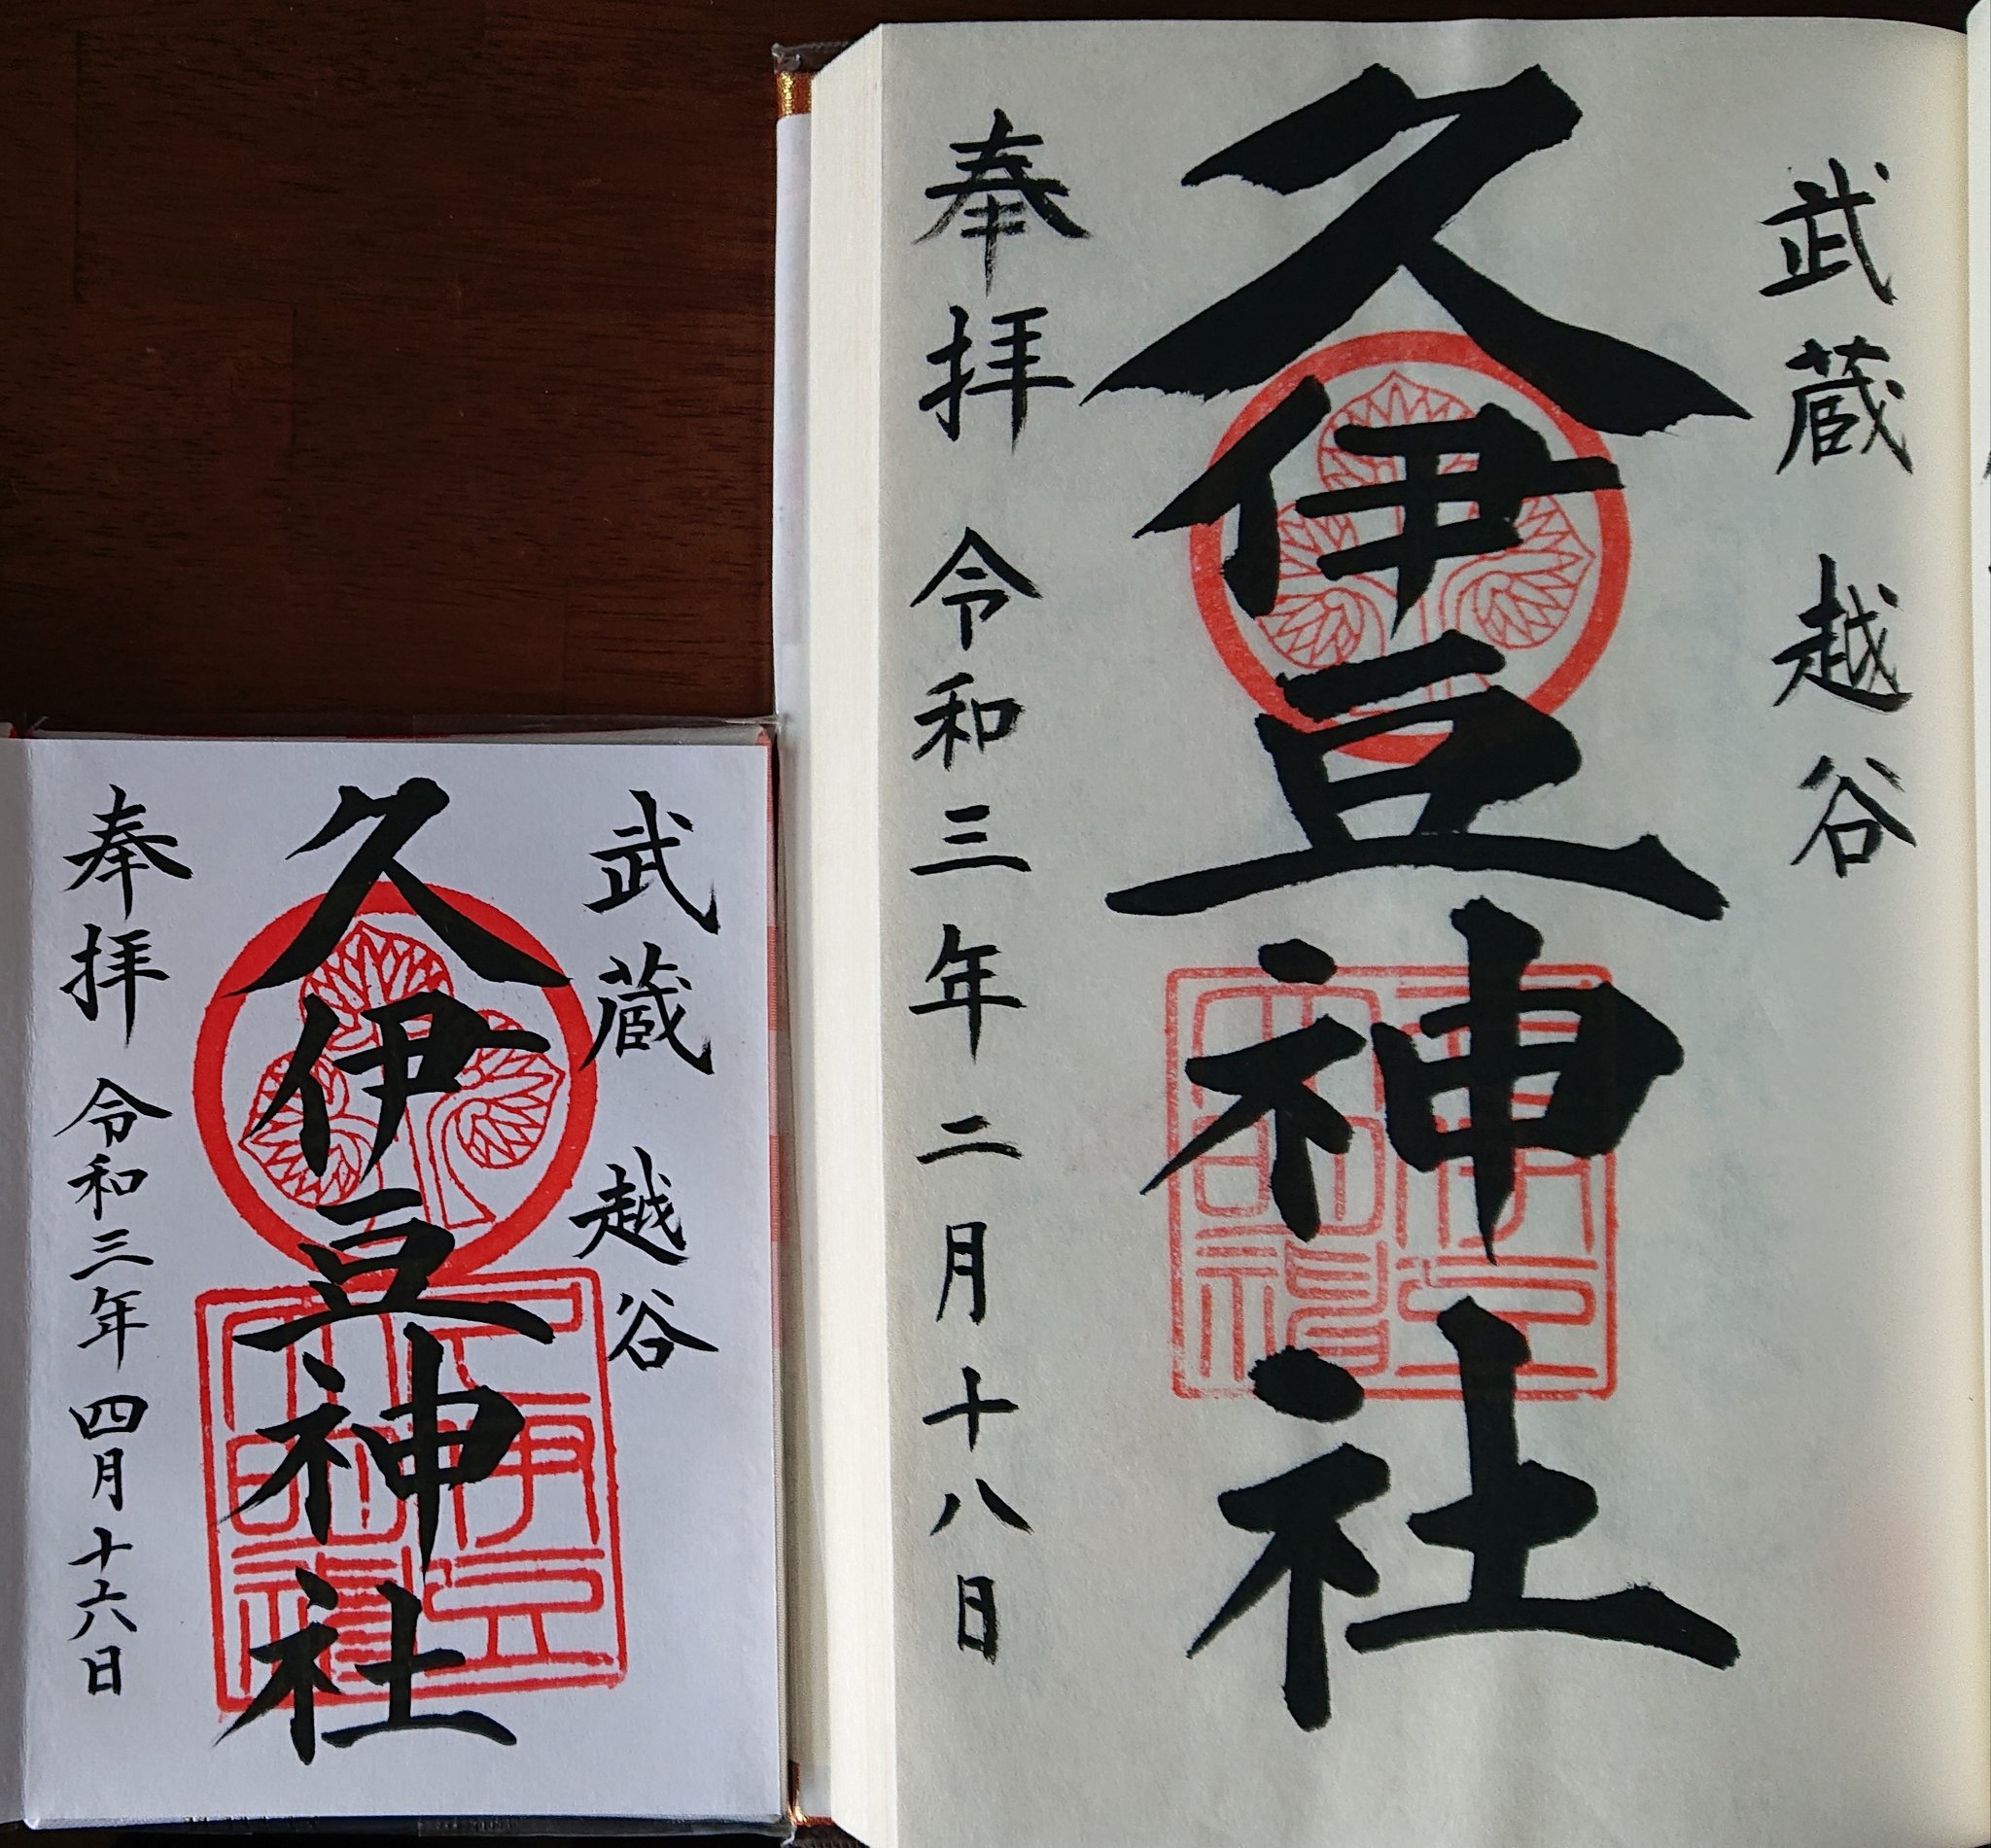 武蔵 越谷
久伊豆神社
奉拝 令和三年二月十八日
武蔵 越谷
久伊豆神社
奉拝 令和三年四月十六日